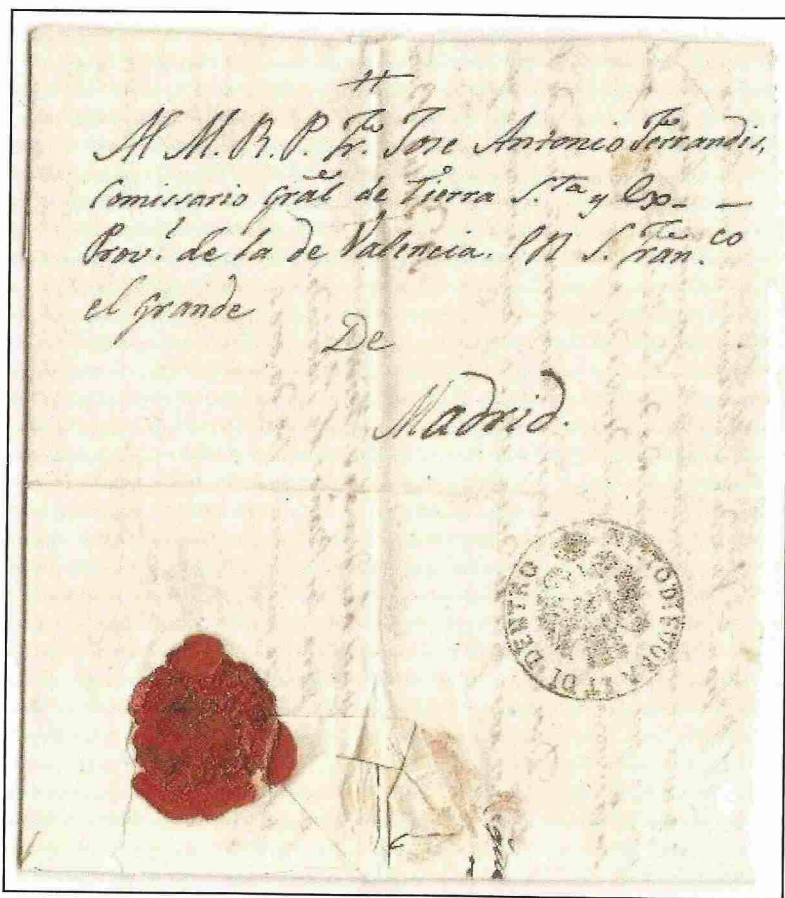 Al M. R. P. Fr. Jose Antonio Ferrandis,
Comissario Gràl de Tierra S.ta y Ex-
Prov.l de la de Valencia. EN S. Fran.co
el Grande
De
Madrid.
NETTO DI FUORA ET DI DENTRO